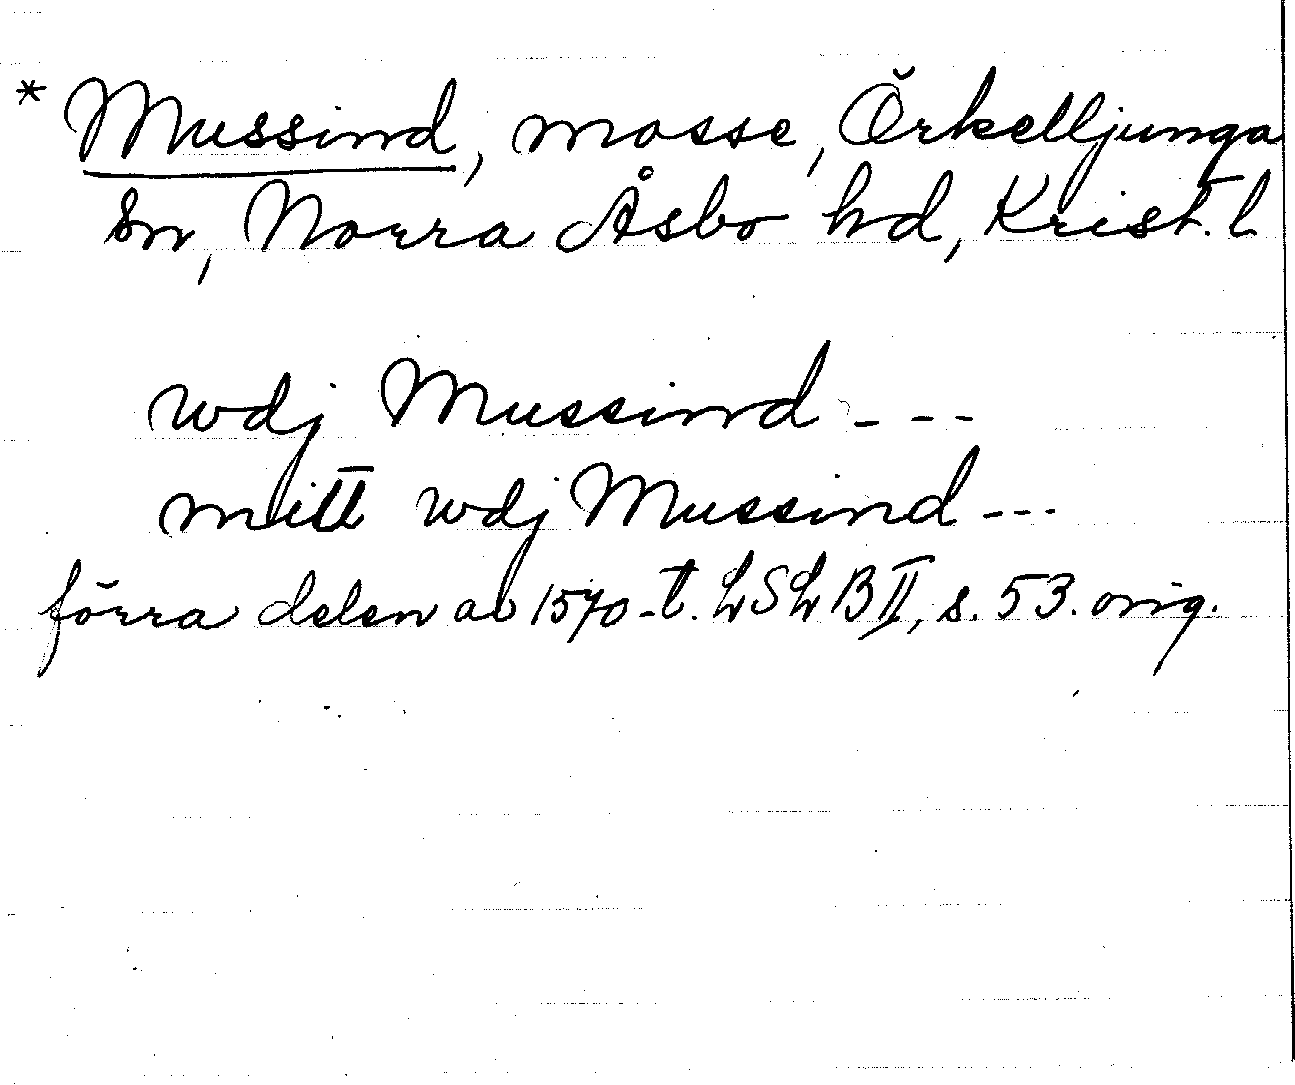 * Mussind, mosse, Örkelljunga
sn, Norra Åsbo hd, Krist. l
wdj Mussind ---
mitt wdj Mussind ---
förra delen av 1570-t. LSLB II, s. 53. orig.